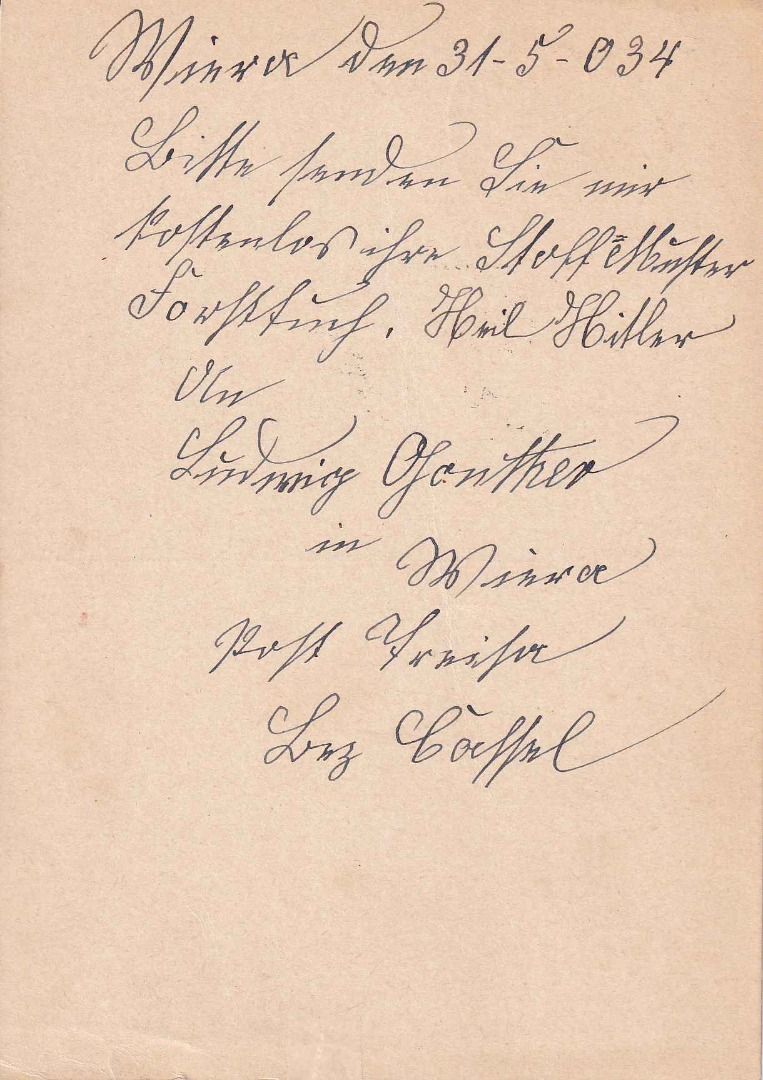 Wiera den 31-5-034
Bitte senden Sie mir
kostenlos ihre Stoff=Muster
Forsttuch. Heil Hitler
An
Ludwig
in Wiera
Post Treisa
Bez Cassel